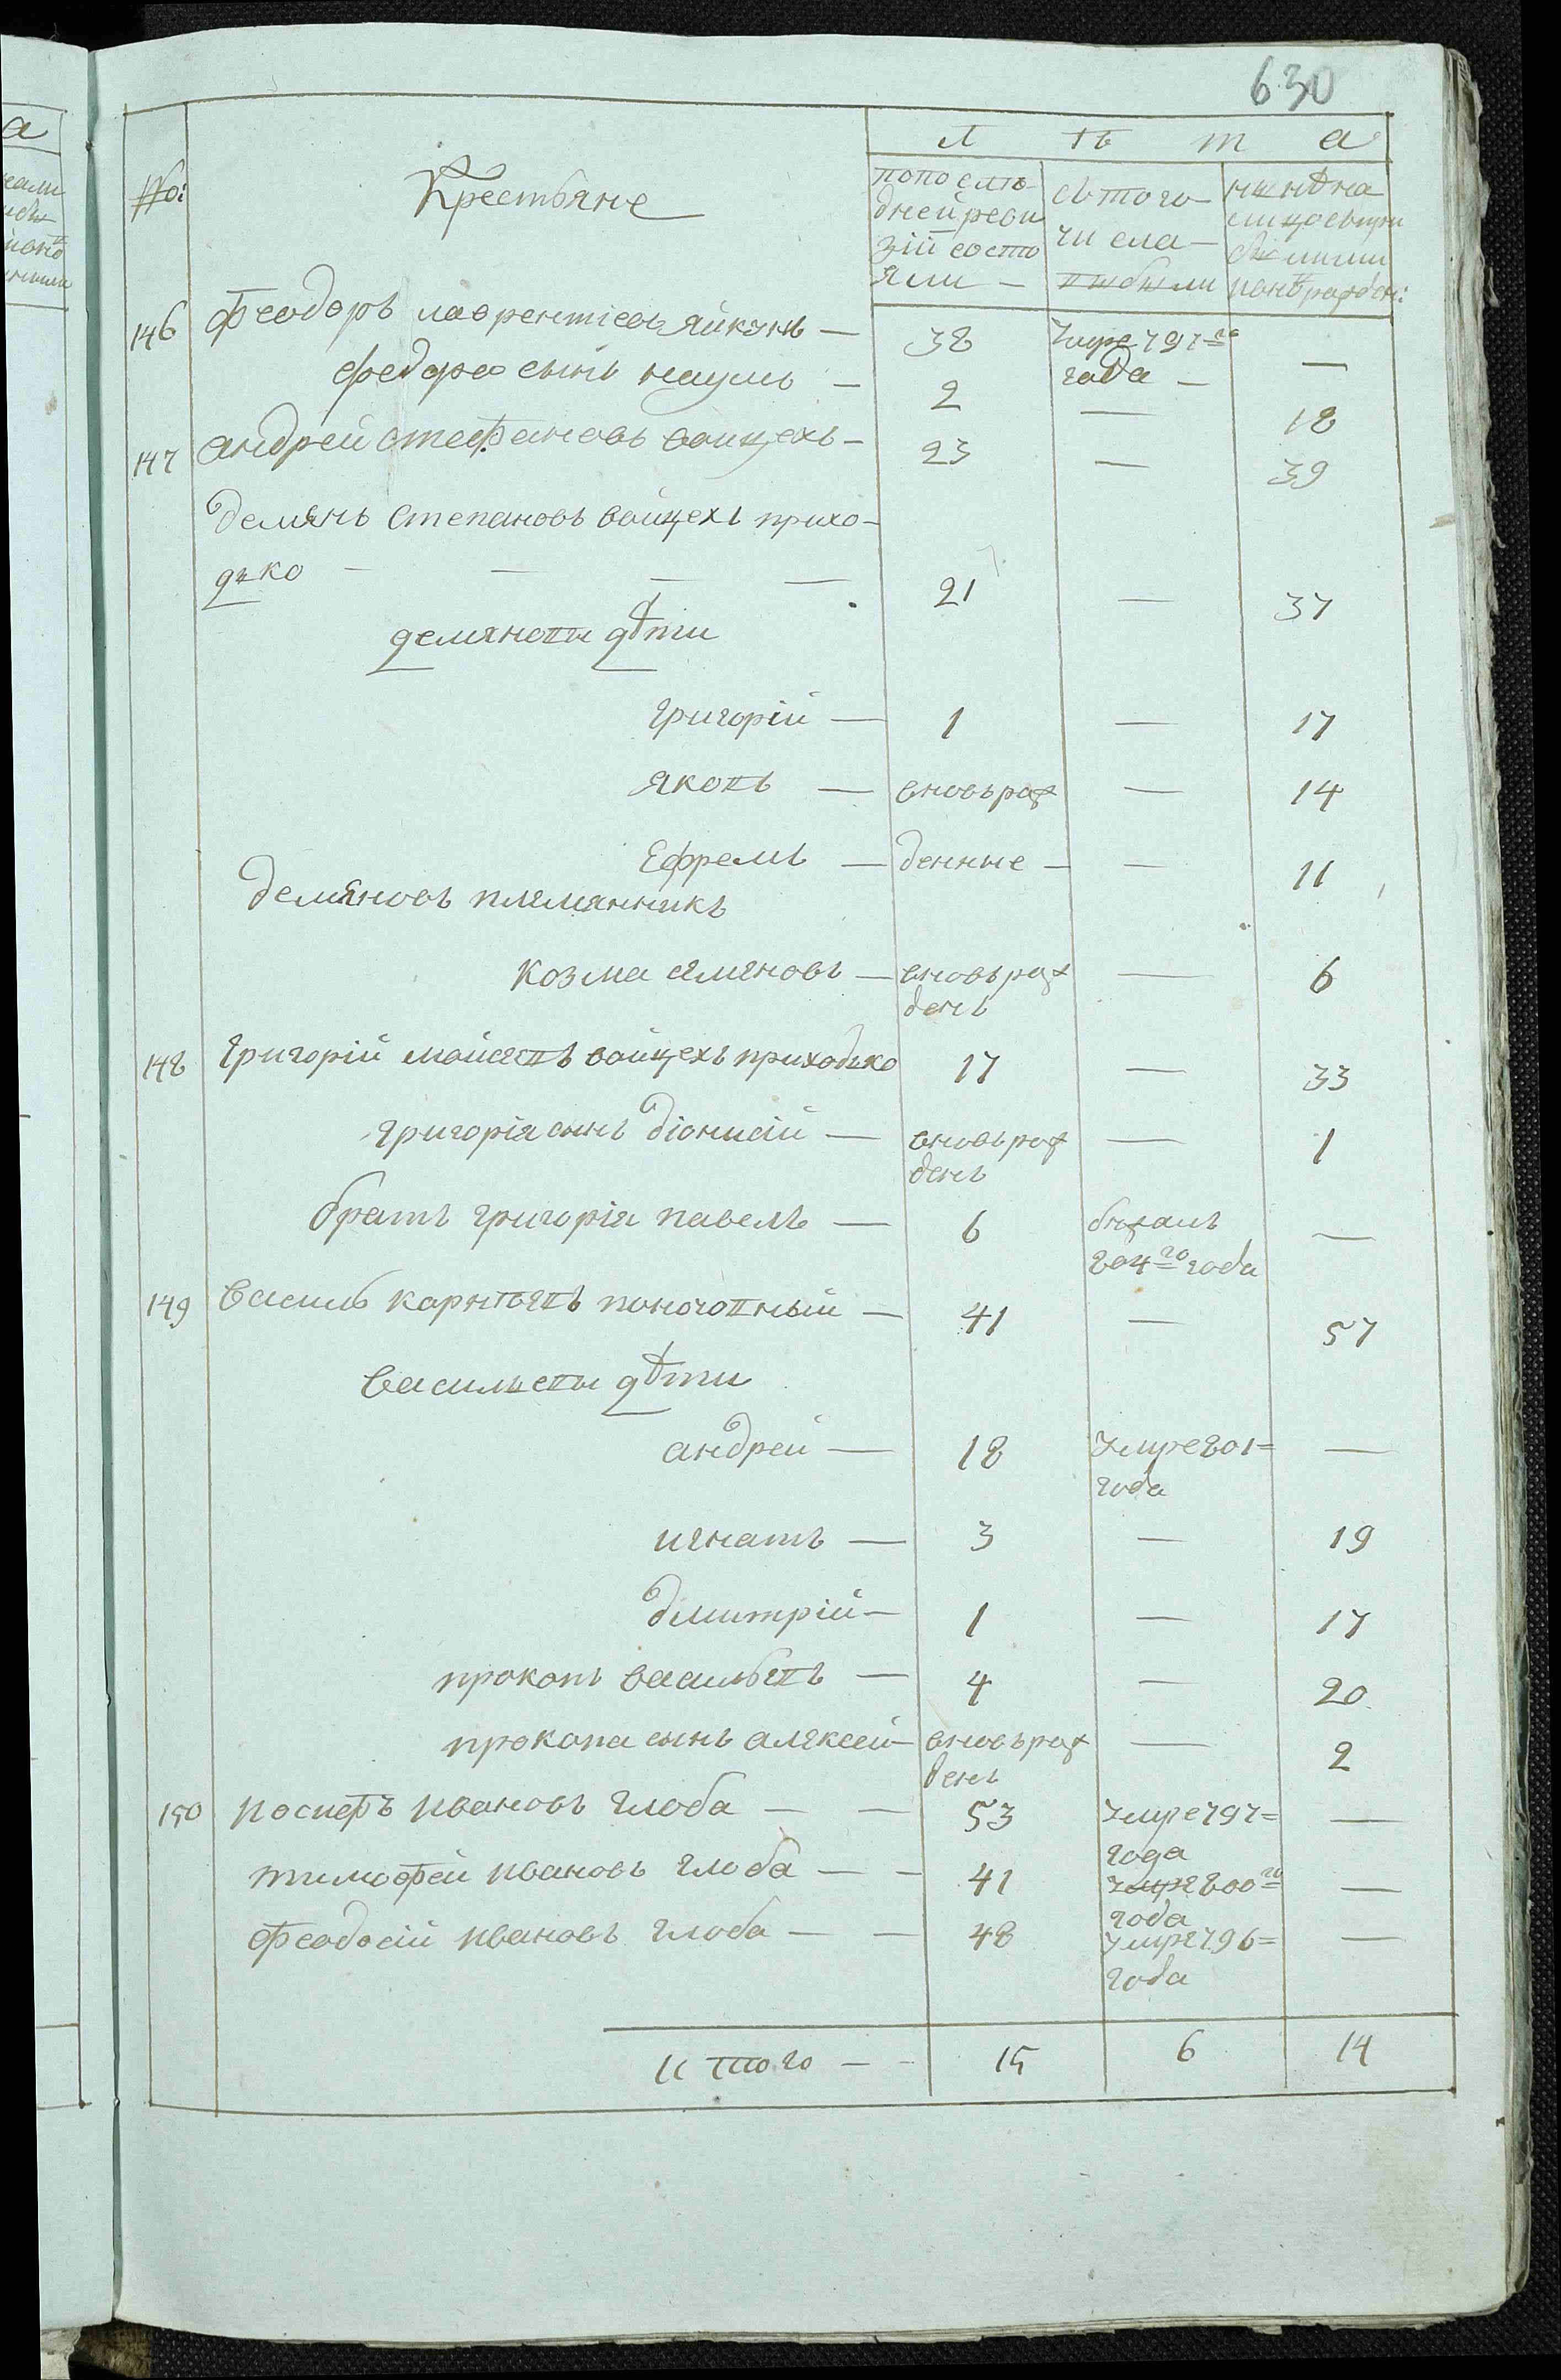 630
Л ѣ т а
No:
Крестьяне
попослѣ
дней реви
зій состо
яли —
съ того
числа —
выбыли
нынѣ на
лицо съ при
былыми
146 Феодоръ лаврентіевъ яйкунъ — 38 умре 797го года — —
федора сынъ наумъ — 2 — 18
147 андрей стефановъ войцехъ — 23 — 39
демянъ степановъ войцехъ прихо-
дко — — — — 21 — 37
демяновы дѣти
григорій — 1 — 17
яковъ — вновь рож — 14
Ефремъ — денные — — 11
демяновъ племянникъ
козма семеновъ — вновь рож
денъ — 6
148 григорій мойсеевъ войцехъ приходько 17 — 33
григорія сынъ діонисій — вновь рож
денъ — 1
братъ григорія павелъ — 6 бѣжалъ
804го года —
149 василь корнѣевъ поночовный — 41 — 57
васильевы дѣти
андрей — 18 умре 801=
года —
игнатъ — 3 — 19
дмитрій — 1 — 17
прокопъ васильевъ — 4 — 20
прокопа сынъ алексей — вновь рож
денъ — 2
150 иосифъ ивановъ глоба — — 53 умре 797=
года —
тимофей ивановъ глоба — — 41 умре 800го
года —
феодосій ивановъ глоба — — 48 умре 796=
года —
И того — - 15 6 14